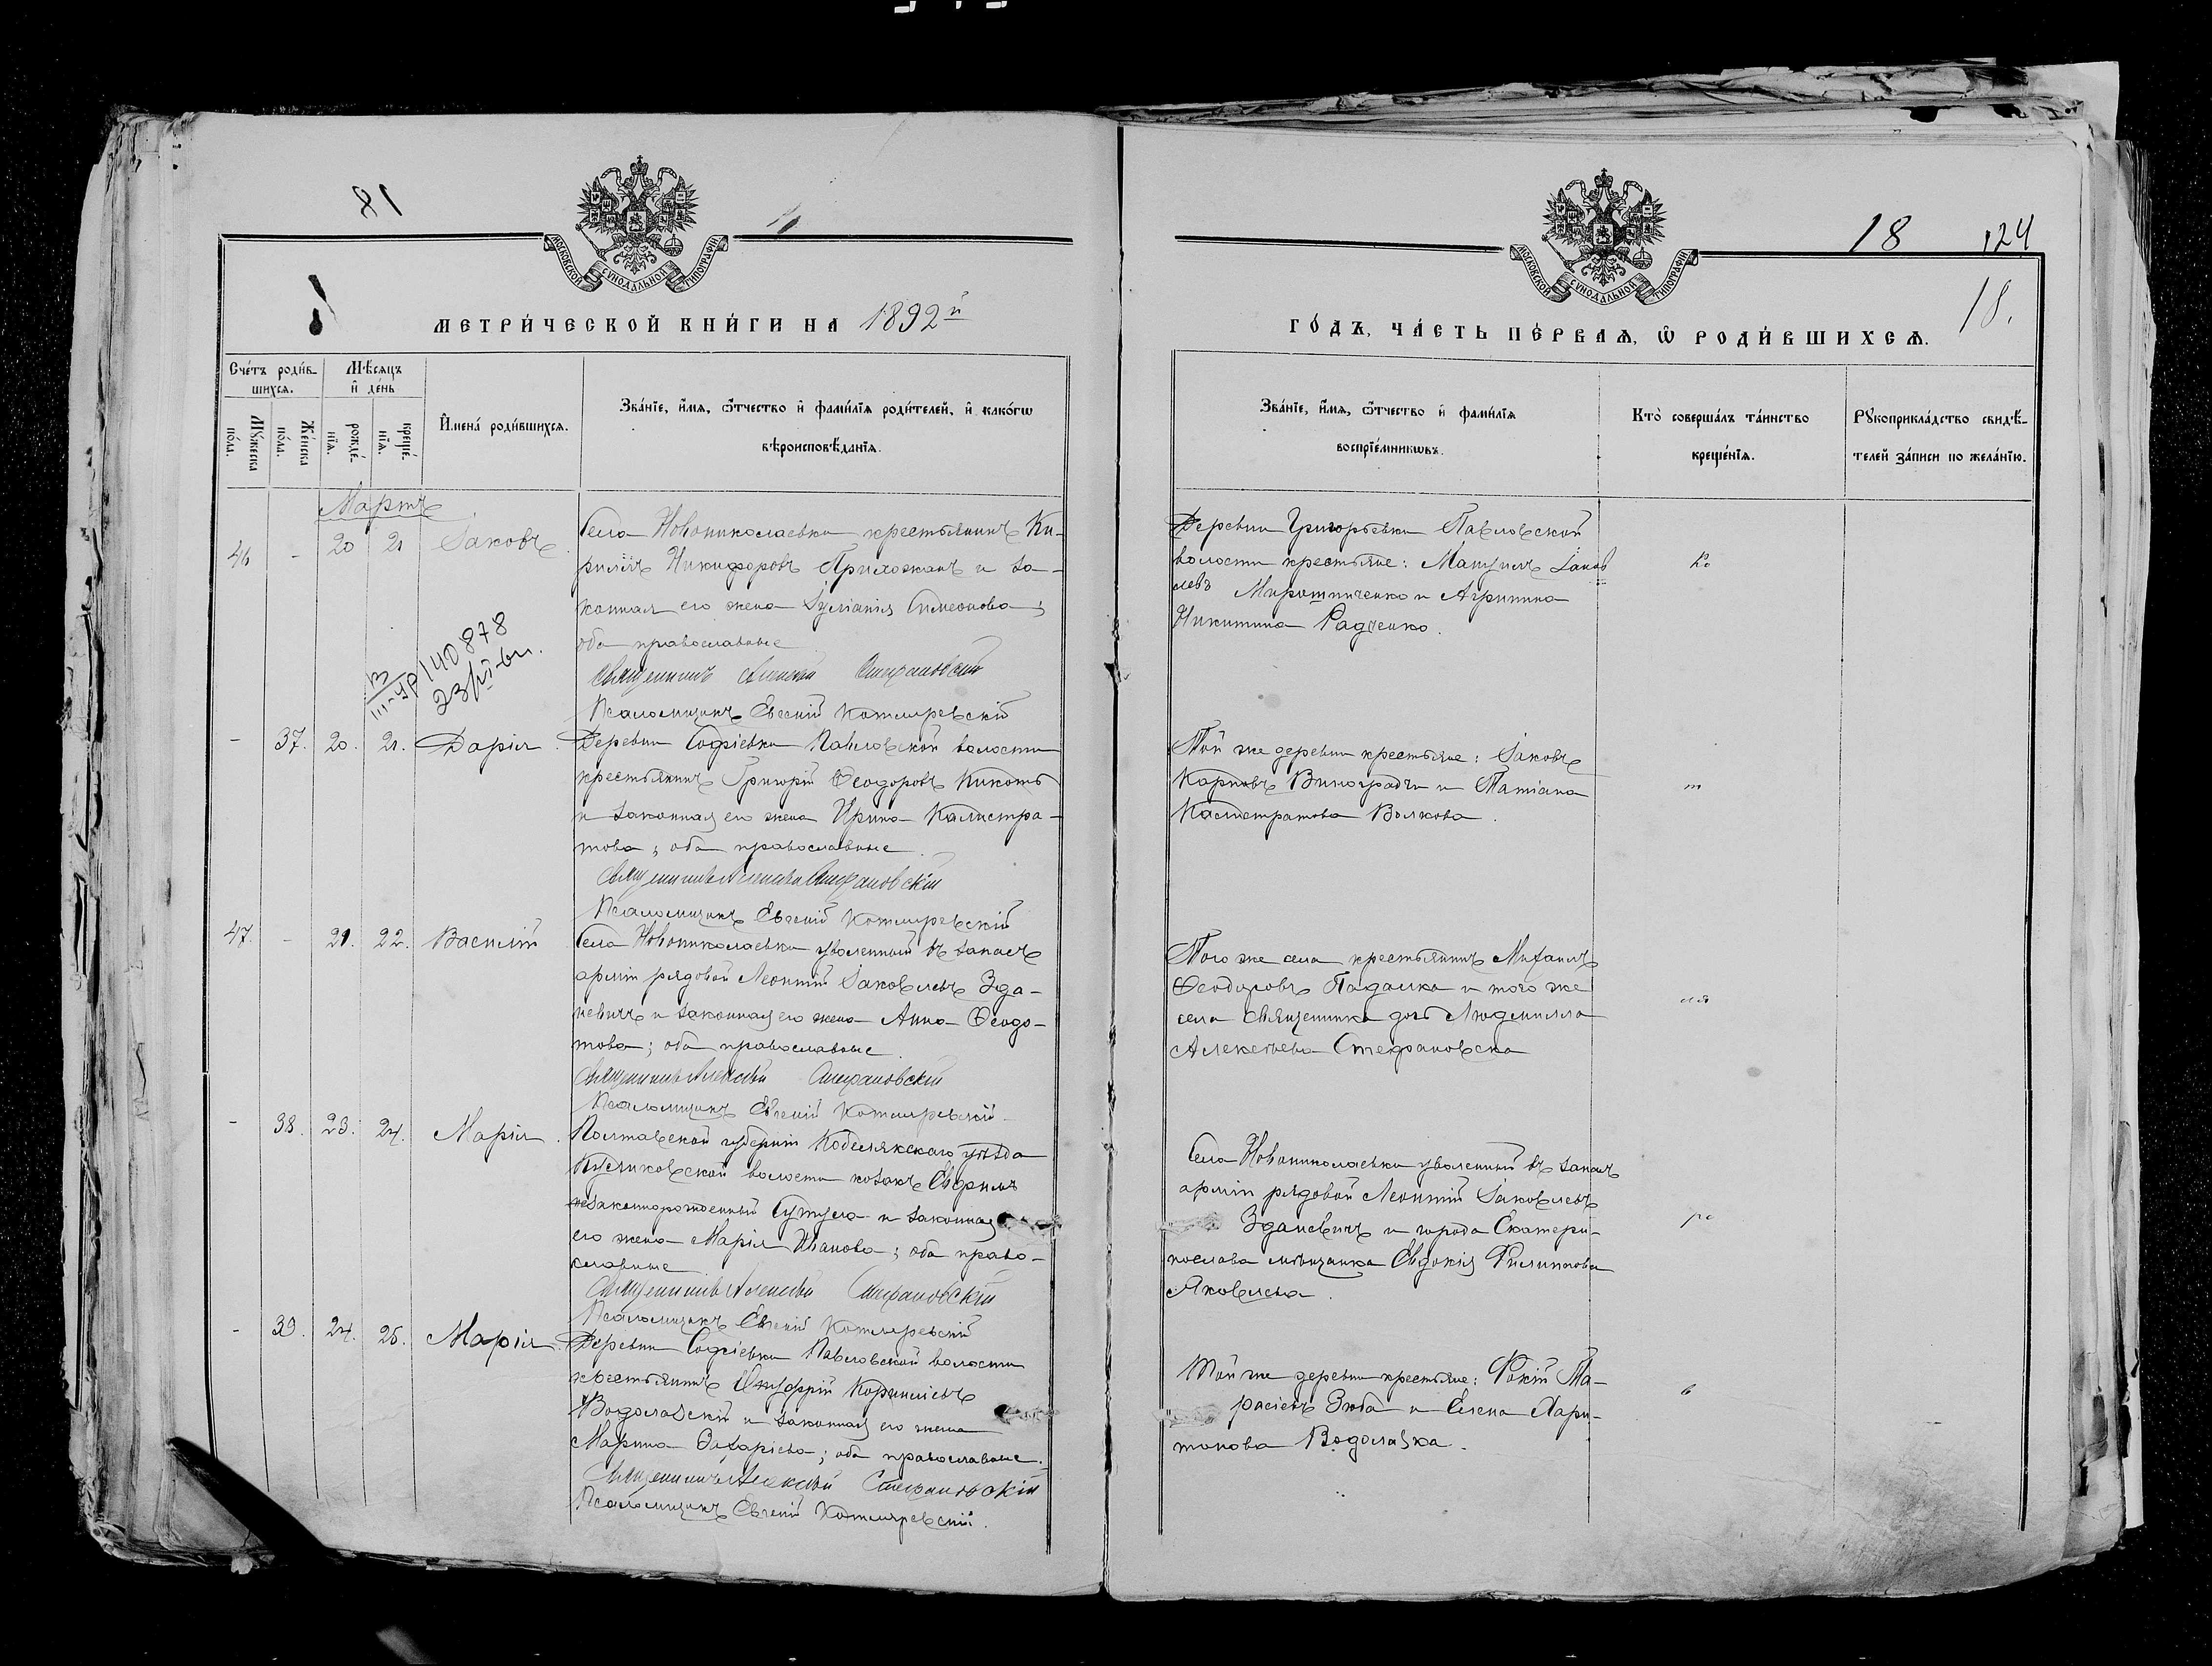 81
18 124
18.
МОСКОВСКОЙ СѴНОДАЛЬНОЙ ТИПОГРАФІИ
МОСКОВСКОЙ СѴНОДАЛЬНОЙ ТИПОГРАФІИ
МЕТРИ́ЧЕСКОЙ КНИ́ГИ НА 1892й
ГО́ДЪ, ЧА́СТЬ ПЕ́РВАѦ, Ѽ РОДИ́ВШИХСѦ.
Счéтъ роди́в-
шихсѧ.
Мꙋжеска по́ла.
Же́нска по́ла.
Мѣ́сѧцъ
и҆ де́нь
рожде́-нїѧ.
креще́-нїѧ.
И҆мена̀ роди́вшихсѧ.
Зва́нїе, и҆́мѧ, ѻ҆́тчество и҆ фами́лїѧ роди́телей, и҆ како́гѡ
вѣроисповѣ́данїѧ.
Зва́нїе, и҆́мѧ, ѻ҆́тчество и҆ фами́лїѧ
воспрїе́мникѡвъ.
Кто̀ соверша́лъ та́инство
креще́нїѧ.
Рꙋкоприкла́дство свидѣ́-
телей за́писи по жела́нїю.
Мартъ
46 - 20 21 Іаковъ.
Села Новониколаевки крестьянинъ Ки-
риллъ Никифоровъ Прихожанъ и за-
конная его жена Іуліанія Симеонова;
оба православные
Священникъ Алексѣй Стефановскій
Псаломщикъ Евгеній Котляревскій
Деревни Григорьевки Павловской
волости крестьяне: Мануилъ Іаков
левъ Мирошниченко и Агрипина
Никитина Радченко.
140878
- 37. 20. 21. Дарія.
Деревни Софіевки Павловской волости
крестьянинъ Григорій Ѳеодоровъ Кикоть
и законная его жена Ирина Калистра-
това; оба православные.
Священникъ Алексѣй Стефановскій
Псаломщикъ Евгеній Котляревскій
Той же деревни крестьяне: Іаковъ
Карповъ Виноградъ и Татіана
Калистратова Волкова.
47. - 21. 22. Василій
Села Новониколаевки уволенный въ запасъ
арміи рядовой Леонтій Іаковлевъ Зда-
невичъ и законная его жена Анна Ѳеодо-
това; оба православные.
Священникъ Алексѣй Стефановскій
Псаломщикъ Евгеній Котляревскій
Того же села крестьянинъ Михаилъ
Ѳеодоровъ Падалка и того же
села священника дочь Людмилла
Алексѣева Стефановска
- 38. 23. 24. Марія.
Полтавской губерніи Кобелякскаго уѣзда
волости козакъ Евфимъ
незаконнорожденный Сутула и законная
его жена Марія Иванова; оба право-
славные
Священникъ Алексѣй Стефановскій
Псаломщикъ Евгеній Котляревскій
Села Новониколаевки уволенный въ запасъ
арміи рядовой Леонтій Іаковлевъ
Зданевичъ и города Екатери-
нослава мѣщанка Евдокія Филиппова
Яковлева.
- 39. 24. 25. Марія.
Деревни Софіевки Павловской волости
крестьянинъ Онуфрій Корниліевъ
Водолазскій и законная его жена
Марина Захаріева; оба православные.
Священникъ Алексѣй Стефановскій
Псаломщикъ Евгеній Котляревскій.
Той же деревни крестьяне: Фокій Та-
расіевъ Зюба и Елена Хари-
тонова Водолазка.